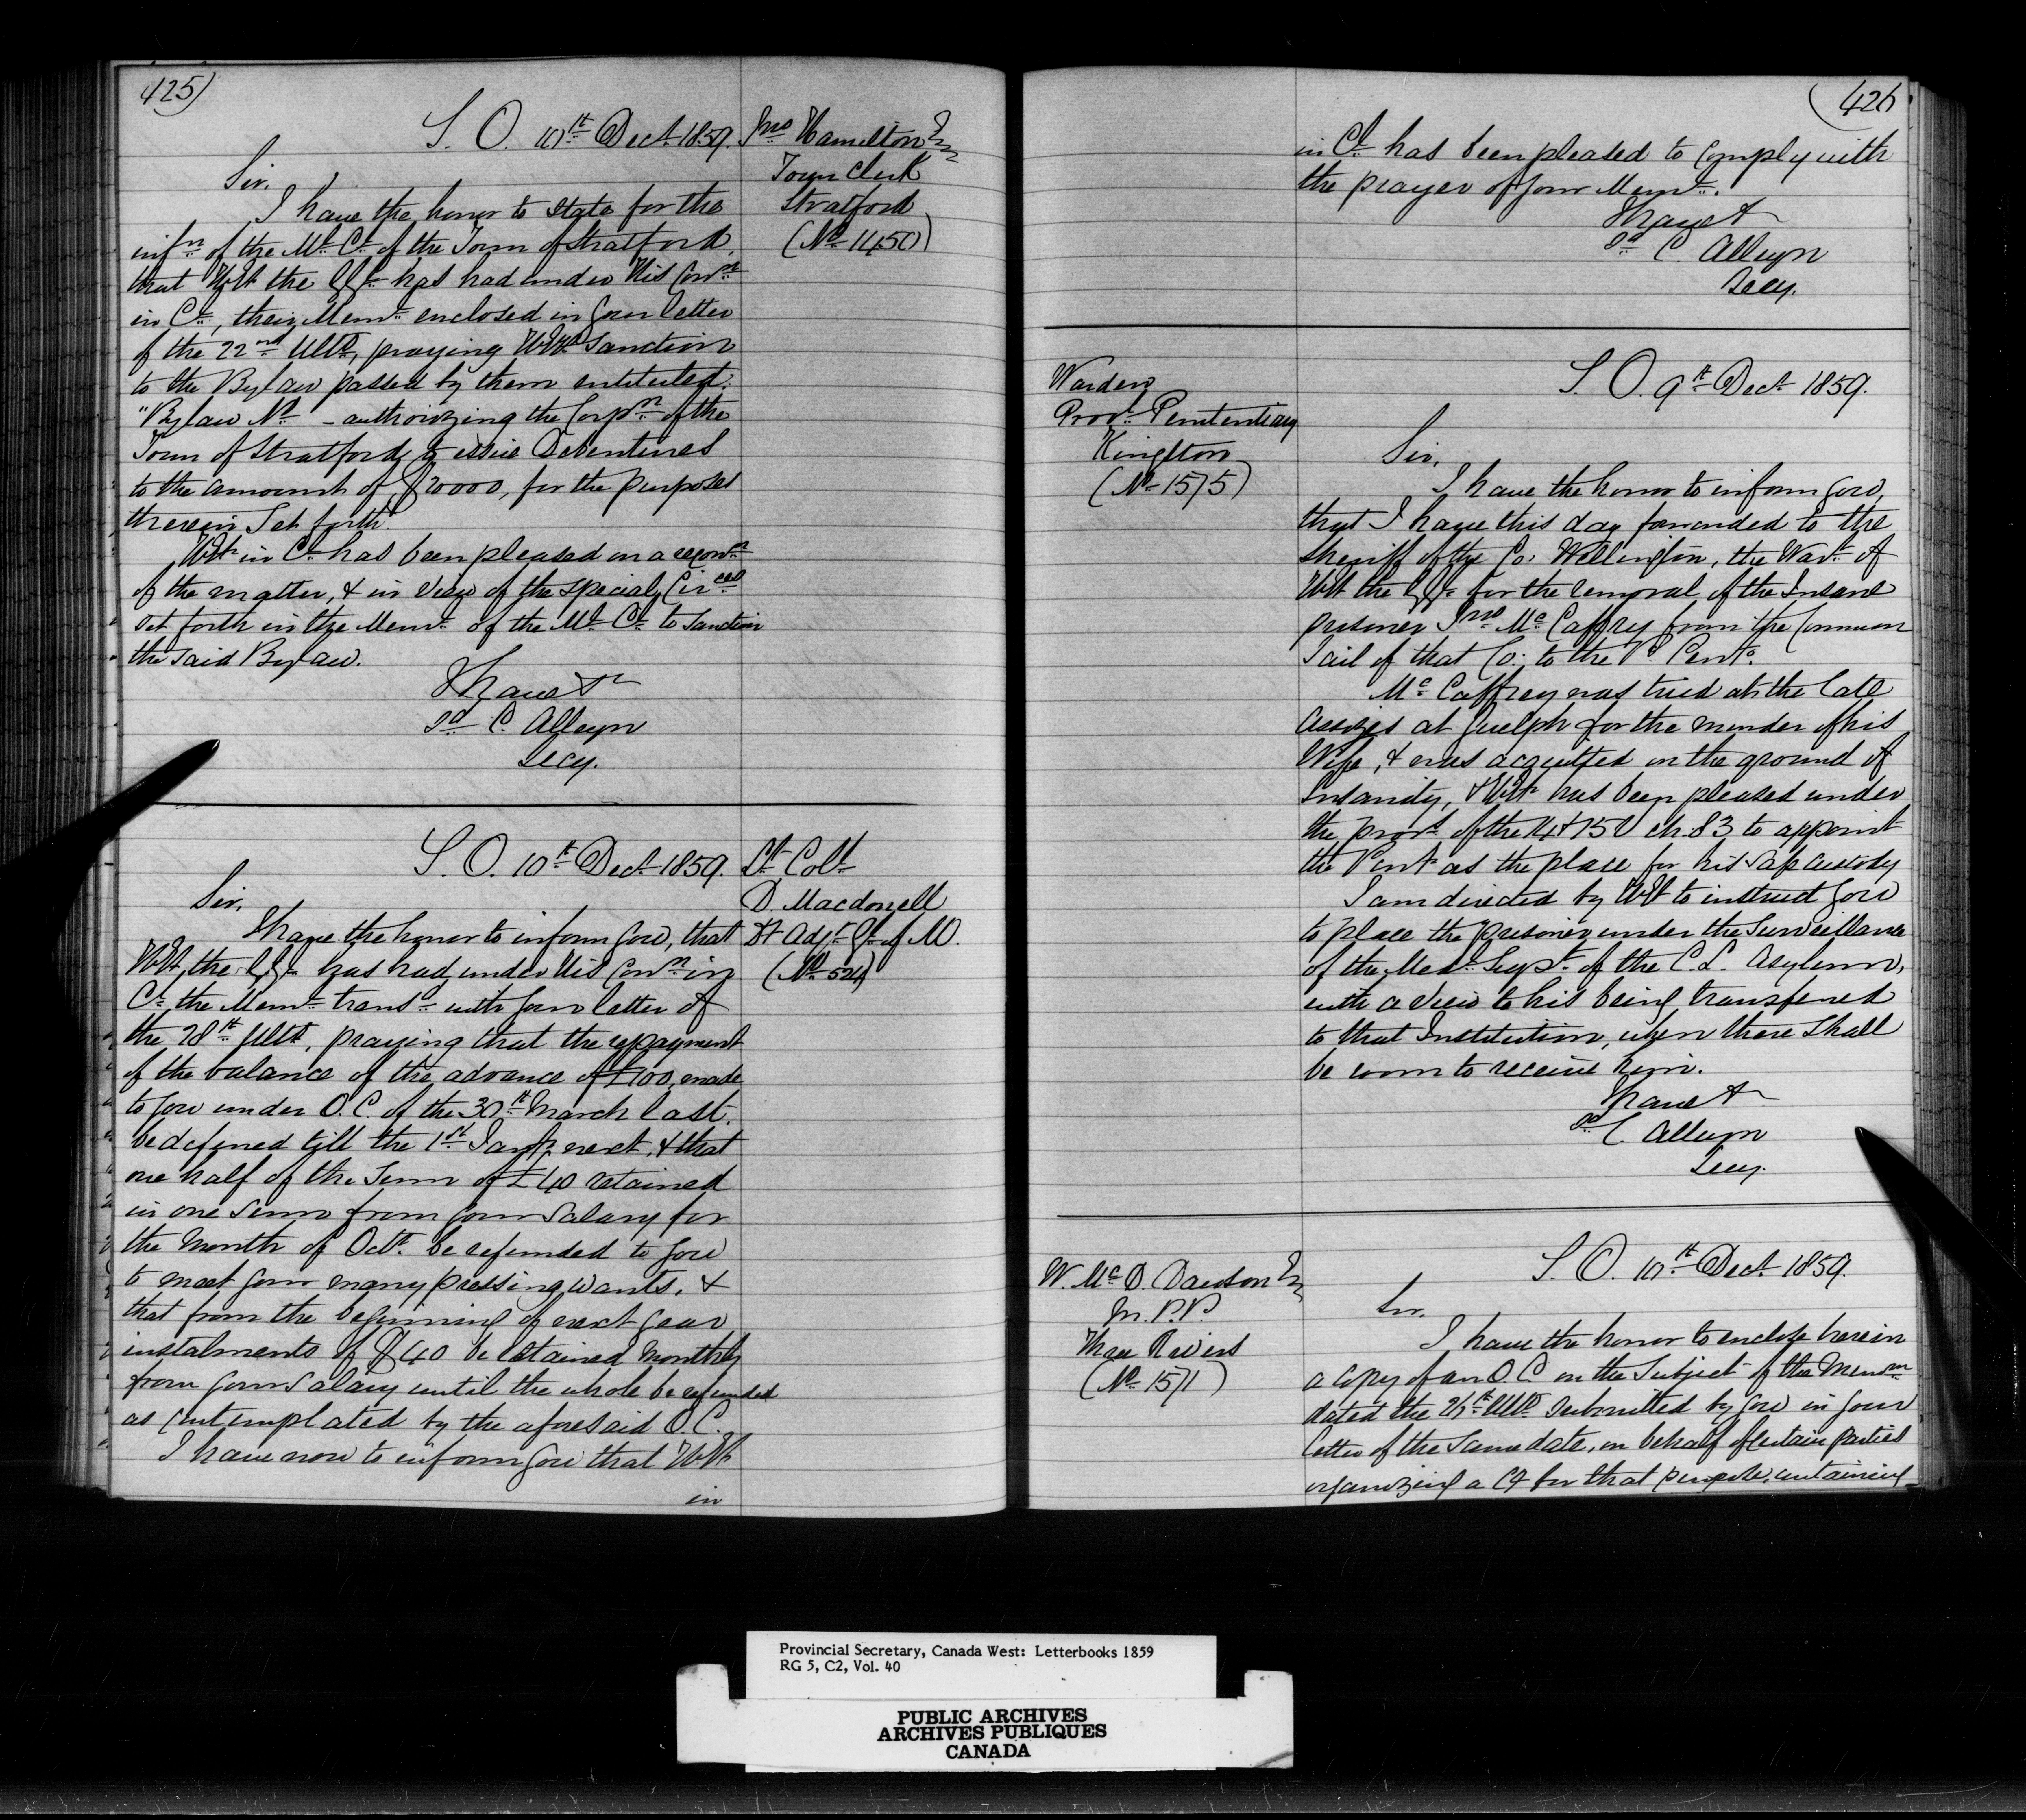 425)
S. O. 10th Dect 1859.
Jno Hamilton Esq
Town Clerk
Stratford
(No 1450)
Sir,
I have the honor to state for the
infn of the Ml Cl of the Town of Stratford,
that HE the GG has had under His Conn
in Cl, their Meml enclosed in your letter
of the 22nd Ulto, praying HE's Sanction
to the Bylaw passed by them entituled:
"Bylaw No - authorizing the Corpn of the
Town of Stratford to issue Debentures
to the amount of $20000, for the purposes
therein Set forth."
HE in Cl has been pleased on a reconn
of the matter, & in view of the special Circes
set forth in the Meml of the Ml Cl to sanction
the said Bylaw.
I have &
sd C. Alleyn
Secy.
S. O. 10th Dect 1859.
Lt Coll
D. Macdonell
Dt Adjt Gl of M.
(No 524)
Sir,
I have the honor to inform you, that
HE, the GG has had under His Conn in
Cl the Meml transd with your letter of
the 28th Ulto, praying that the repayment
of the balance of the advance of £100, made
to you under O. C. of the 30th March last,
be deferred till the 1st Jany next, & that
one half of the Sum of £40 retained
in one sum from your Salary for
the Month of Octr be refunded to you
to meet your many pressing wants, &
that from the beginning of next year
instalments of $40 be retained monthly
from your Salary until the whole be refunded
as contemplated by the aforesaid O.C.
I have now to inform you that HE
in
(426
in Cl has been pleased to comply with
the prayer of your Meml.
I have &
sd C Alleyn
Secy.
Warden
Provl Penitentiary
Kingston
(No 1575)
S. O. 9th Dect 1859.
Sir,
I have the honor to inform you,
that I have this day forwarded to the
Sheriff of the Co: Wellington, the Wart of
HE the GG for the removal of the Insane
prisoner Jno Mc Caffrey from the Common
Jail of that Co: to the Pl Penty.
Mc Caffrey was tried at the late
Assizes at Guelph for the murder of his
Wife, & was acquitted on the ground of
Insanity, & HE has been pleased under
the provs of the 14 & 15 V ch. 83 to appoint
the Penty as the place for his safe custody
I am directed by HE to instruct you
to place the prisoner under the Surveillance
of the Medl Supt of the C. L. Asylum,
with a view to his being transferred
to that Institution, when there Shall
be room to receive him.
I have &
sd C. Alleyn
Secy.
W. Mc D. Dawson Esq
M.P.P.
Three Rivers
(No 1571)
S. O. 10th Dect 1859.
Sir,
I have the honor to enclose herein
a Copy of an O.C. on the Subject of the Memn
dated the Ulto submitted by you in your
letter of the same date, on behalf of certain parties
organizing a Co for that purpose, containing
Provincial Secretary, Canada West: Letterbooks 1859
RG 5, C2, Vol. 40
PUBLIC ARCHIVES
ARCHIVES PUBLIQUES
CANADA